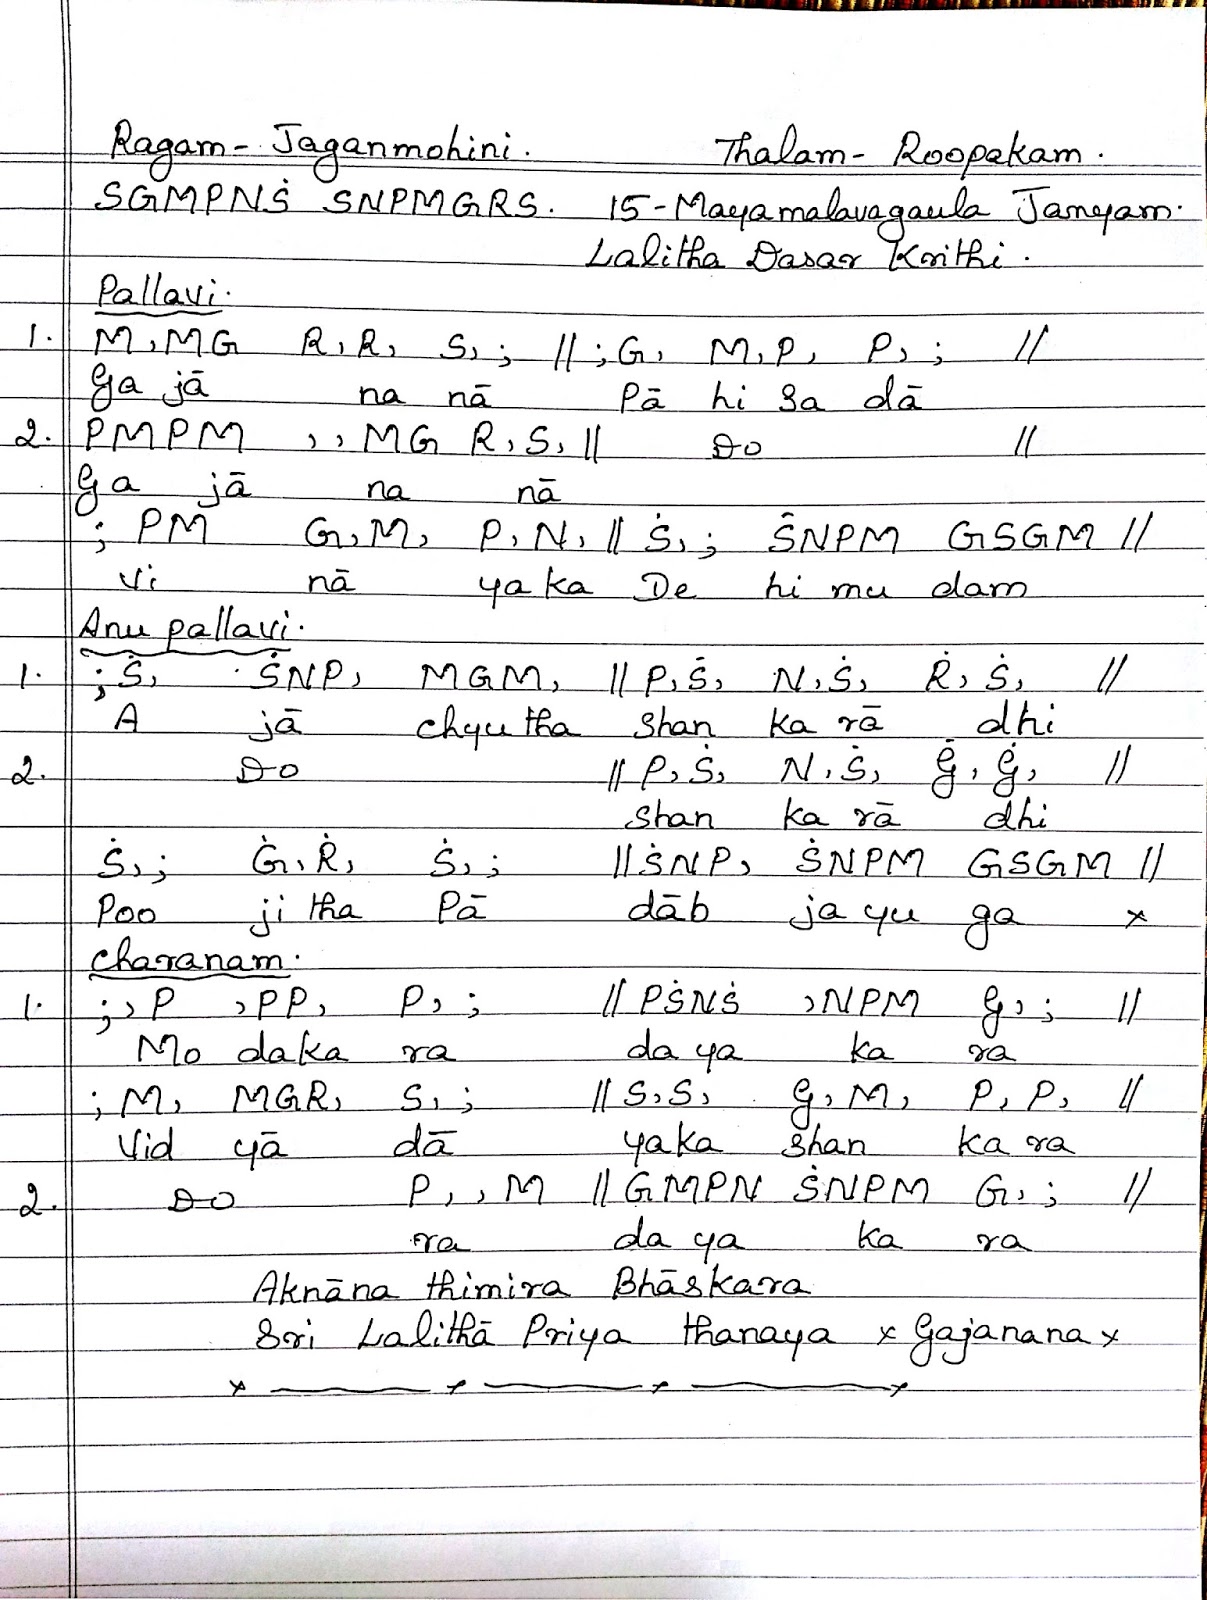 Ragam - Jaganmohini. Thalam - Roopakam.
SGMPNṠ SNPMGRS. 15-Mayamalavagaula Janyam.
Lalitha Dasar Krithi.
Pallavi.
1. M,MG R,R, S,; // ;G, M,P, P,; //
Ga jā na nā Pā hi sa dā
2. PMPM ,,MG R,S, // Do //
Ga jā na nā
; PM G,M, P,N, // Ṡ,; ṠNPM GSGM //
Vi nā yaka De hi mu dam
Anu pallavi.
1. ;Ṡ, ṠNP, MGM, // P,Ṡ, N,Ṡ, Ṙ,Ṡ, //
A jā chyutha shan ka rā dhi
2. Do // P,Ṡ, N,Ṡ, Ġ,Ġ, //
shan ka rā dhi
Ṡ,; Ġ,Ṙ, Ṡ,; // ṠNP, ṠNPM GSGM //
Poo ji tha Pā dāb ja yu ga x
Charanam.
1. ;,P ,PP, P,; // PṠNṠ ,NPM G,; //
Mo daka ra da ya ka ra
;M, MGR, S,; // S,S, G,M, P,P, //
Vid yā dā yaka shan ka ra
2. Do P,,M // GMPN ṠNPM G,; //
ra da ya ka ra
Aknāna thimira Bhāskara
Sri Lalithā Priya thanaya x Gajanana x